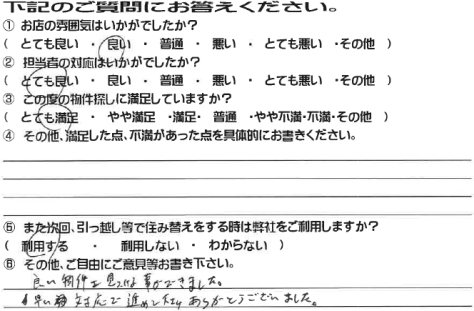 下記のご質問にお答えください。
① お店の雰囲気はいかがでしたか?
( とても良い ・ 良い ・ 普通 ・ 悪い ・ とても悪い ・その他 )
② 担当者の対応はいかがでしたか?
( とても良い ・ 良い ・ 普通 ・ 悪い ・ とても悪い ・その他 )
③ この度の物件探しに満足していますか?
( とても満足 ・ やや満足 ・満足・ 普通 ・やや不満・不満・その他 )
④ その他、満足した点、不満があった点を具体的にお書きください。
⑤ また次回、引っ越し等で住み替えをする時は弊社をご利用しますか?
( 利用する ・ 利用しない ・ わからない )
⑥ その他、ご自由にご意見等お書き下さい。
良い物件を見つける事ができました。
早い対応で進めて頂きありがとうございました。